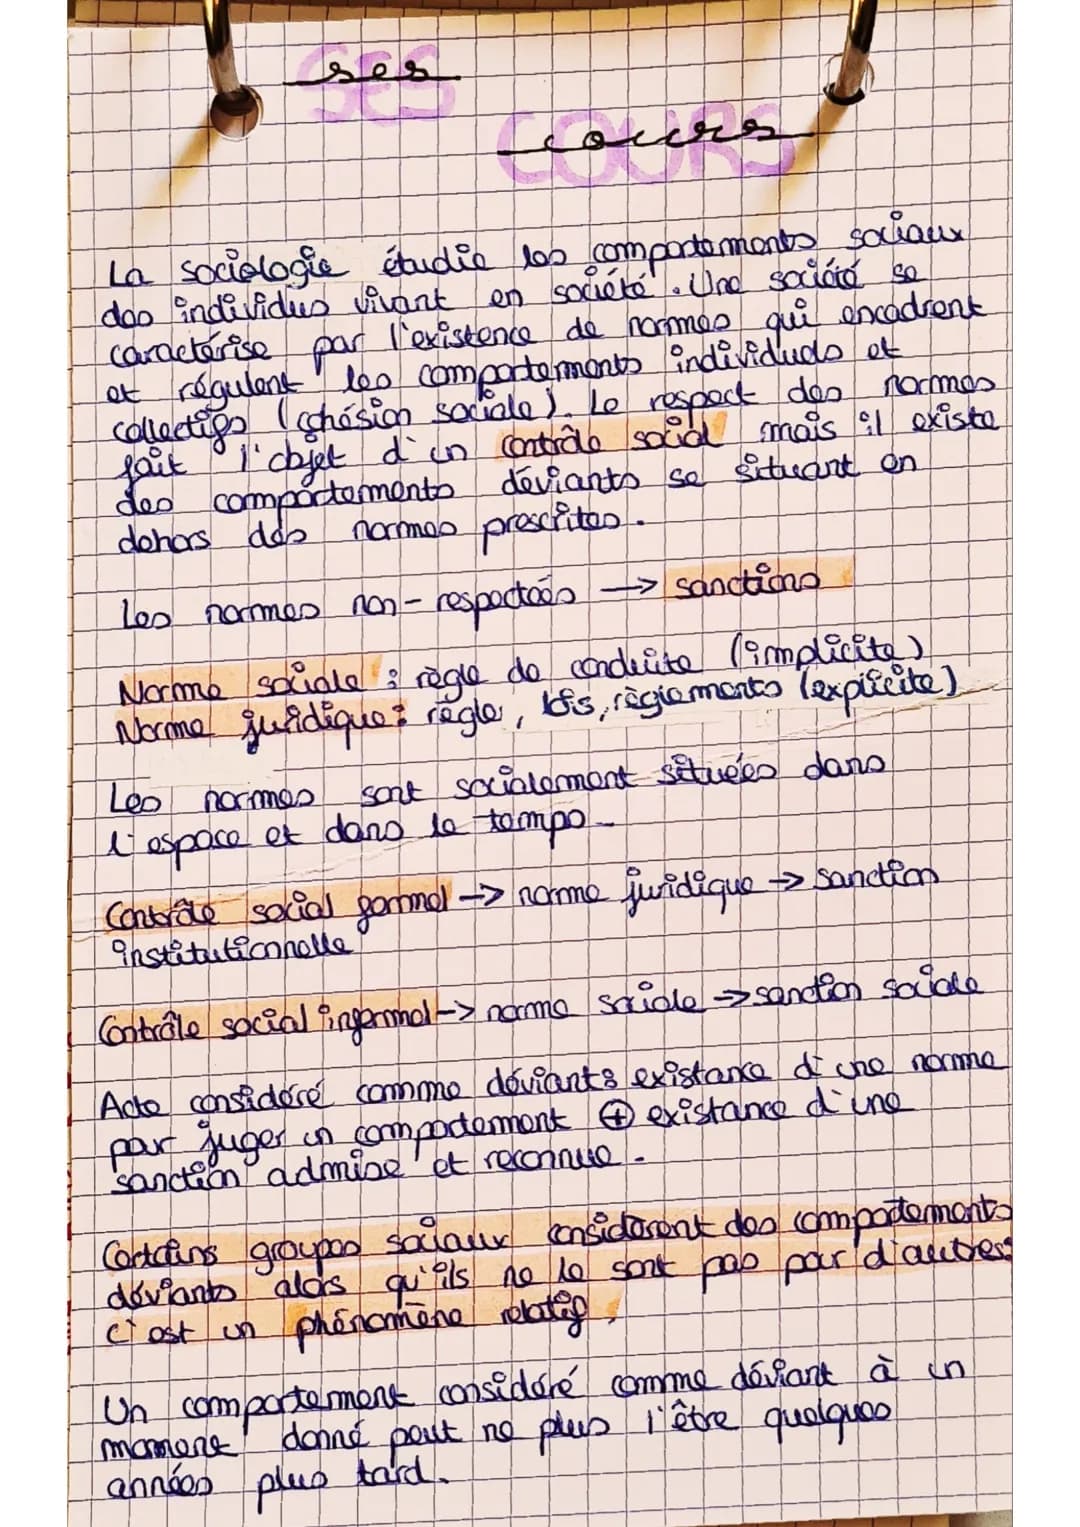 SES
ses
COURS
cours
La sociologie étudie les comportements sociaux
des individus vivant en société. Une société se
caractérise par l'existence de normes qui encadrent
et régulent les comportements individuels et
collectifs (cohésion sociale). Le respect des normes
fait l'objet d'un contrôle social mais il existe
des comportements déviants se situant en
dehors des normes prescrites.
Les normes non-respectées → sanctions
Norme sociale : règle de conduite (implicite)
Norme juridique : règle, lois, règlements (explicite)
Les normes sont socialement situées dans
l'espace et dans le temps.
Contrôle social formel → norme juridique → sanction
institutionnelle
Contrôle social informel → norme sociale → sanction sociale
Acte considéré comme déviant : existance d'une norme
par juger un comportement ⊕ existance d'une
sanction admise et reconnue.
Certains groupes sociaux considèrent des comportements
déviants alors qu'ils ne le sont pas par d'autres :
c'est un phénomène relatif.
Un comportement considéré comme déviant à un
moment donné peut ne plus l'être quelques
années plus tard.